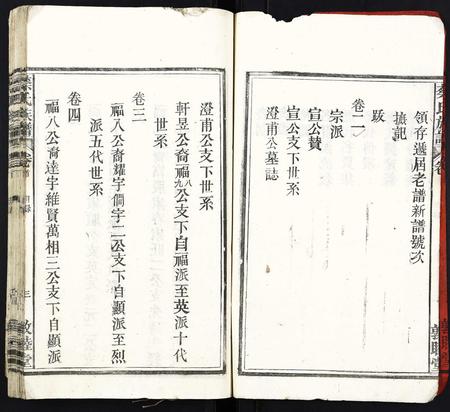 領存遞屆老譜新譜號次
摭記
跋
卷二
宗派
宣公贊
宣公墓
澄甫公墓誌
敦睦堂
澄甫公支下世系
軒昱公裔福八九公支下自福派至英派十代
世系
卷三
福八公裔耀宇侗宇二公支下自顯派至烈
派五代世系
卷四
福八公裔達宇維賢萬相三公支下自顯派
氏族譜
三
敦睦堂